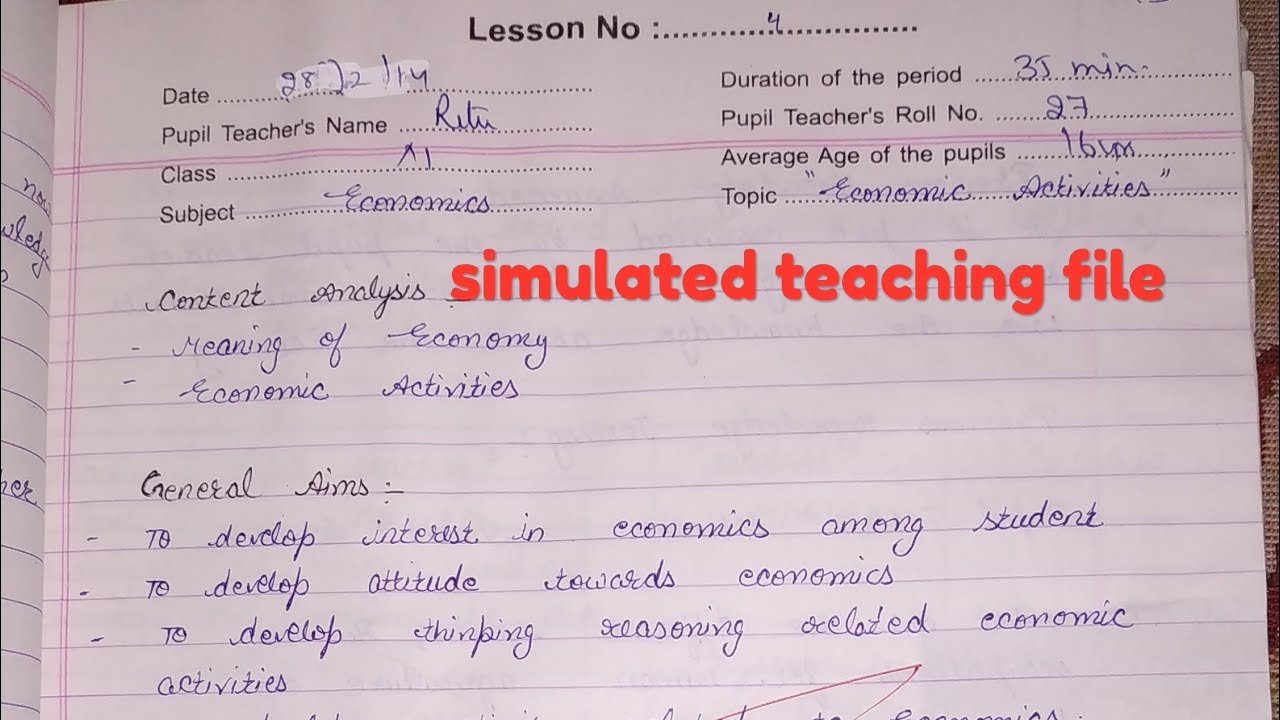 Lesson No :..............4..................
Date 28/2/14
Duration of the period 35 min.
Pupil Teacher's Name Ritu
Pupil Teacher's Roll No. 27
Class XI
Average Age of the pupils 16 yrs
Subject Economics
Topic "Economic Activities"
simulated teaching file
Content Analysis :-
- Meaning of Economy
- Economic Activities
General Aims :-
- To develop interest in economics among student
- To develop attitude towards economics
- To develop thinking reasoning related economic
activities
to Economics.